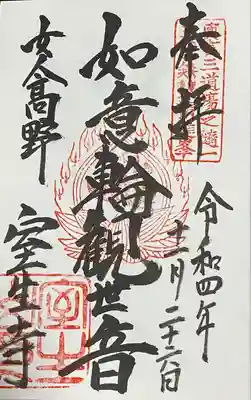 奉拝
令和四年
十一月二十六日
如意輪観世音
女人高野
室生寺